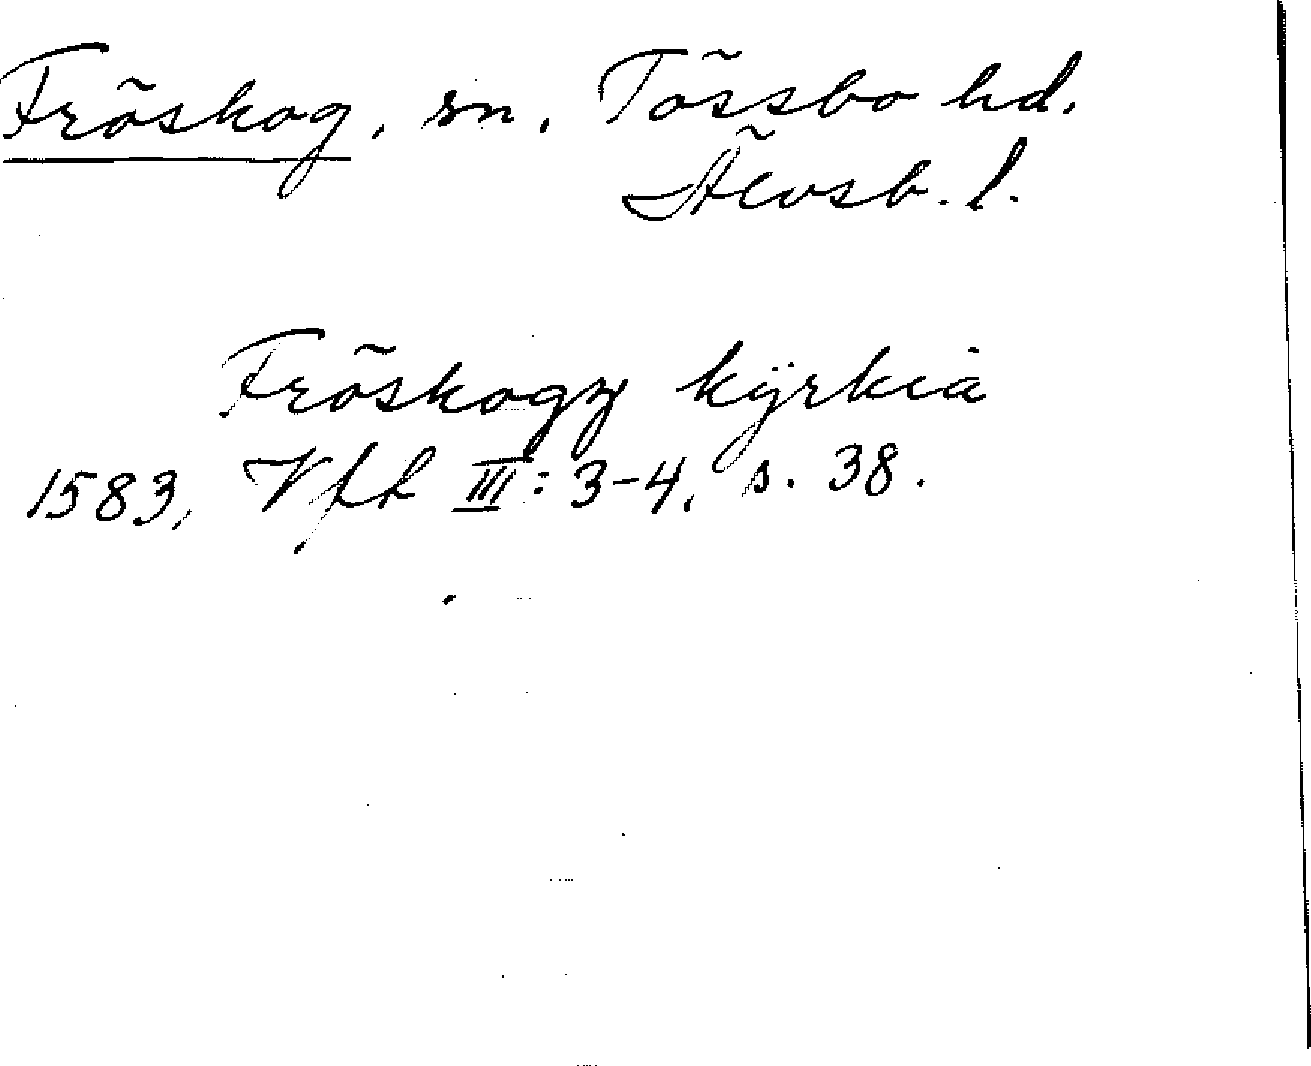 Fröskog, sn, Tössbo hd.
Älvsb. l.
Fröskogz kÿrkia
1583, Vfk III: 3-4, s. 38.